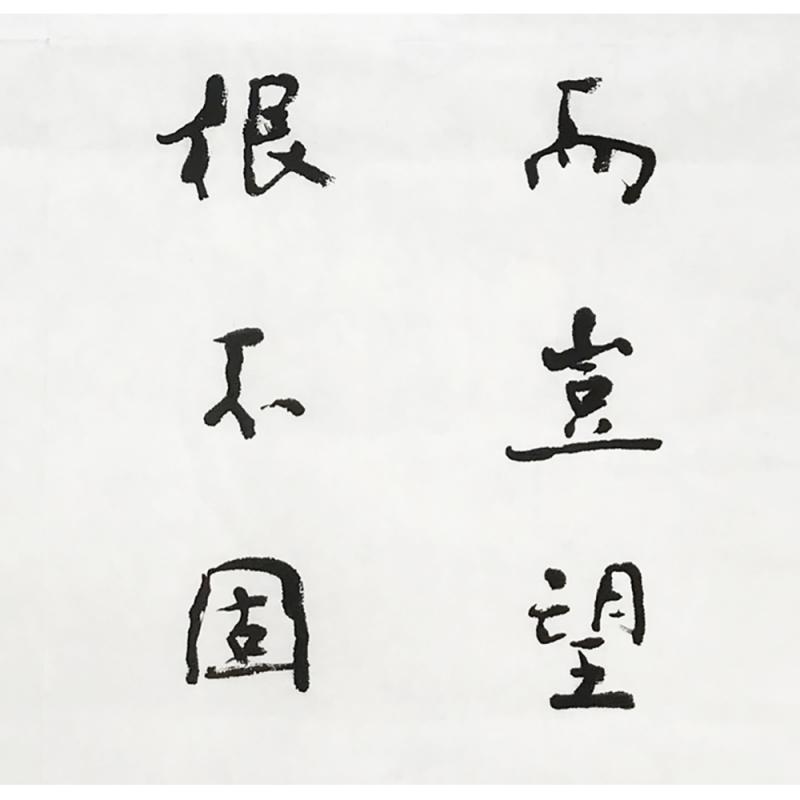 而豈望
根不固